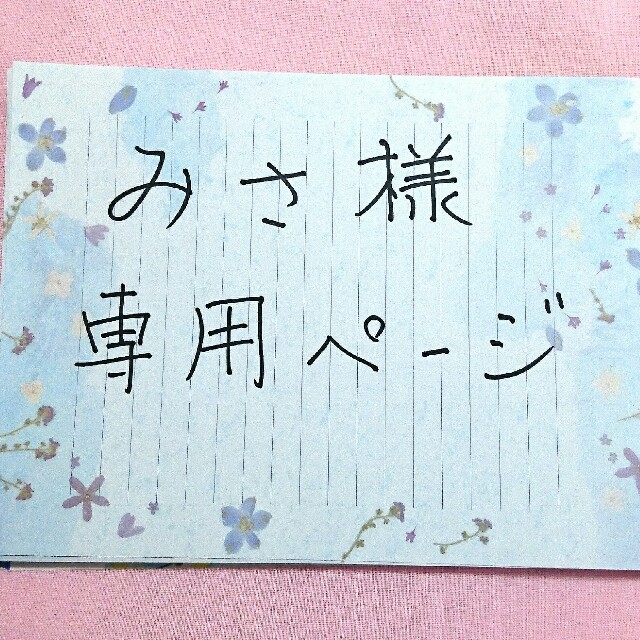 みさ様
専用ページ